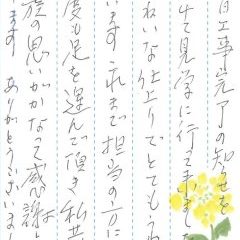 日工事完了の知らせを
て見学に行って来ました
れいな仕上りでとてもうれ
います これまで担当の方に
度も足を運んで頂き私共
族の思いがかなって感謝し
ます ありがとうございまし